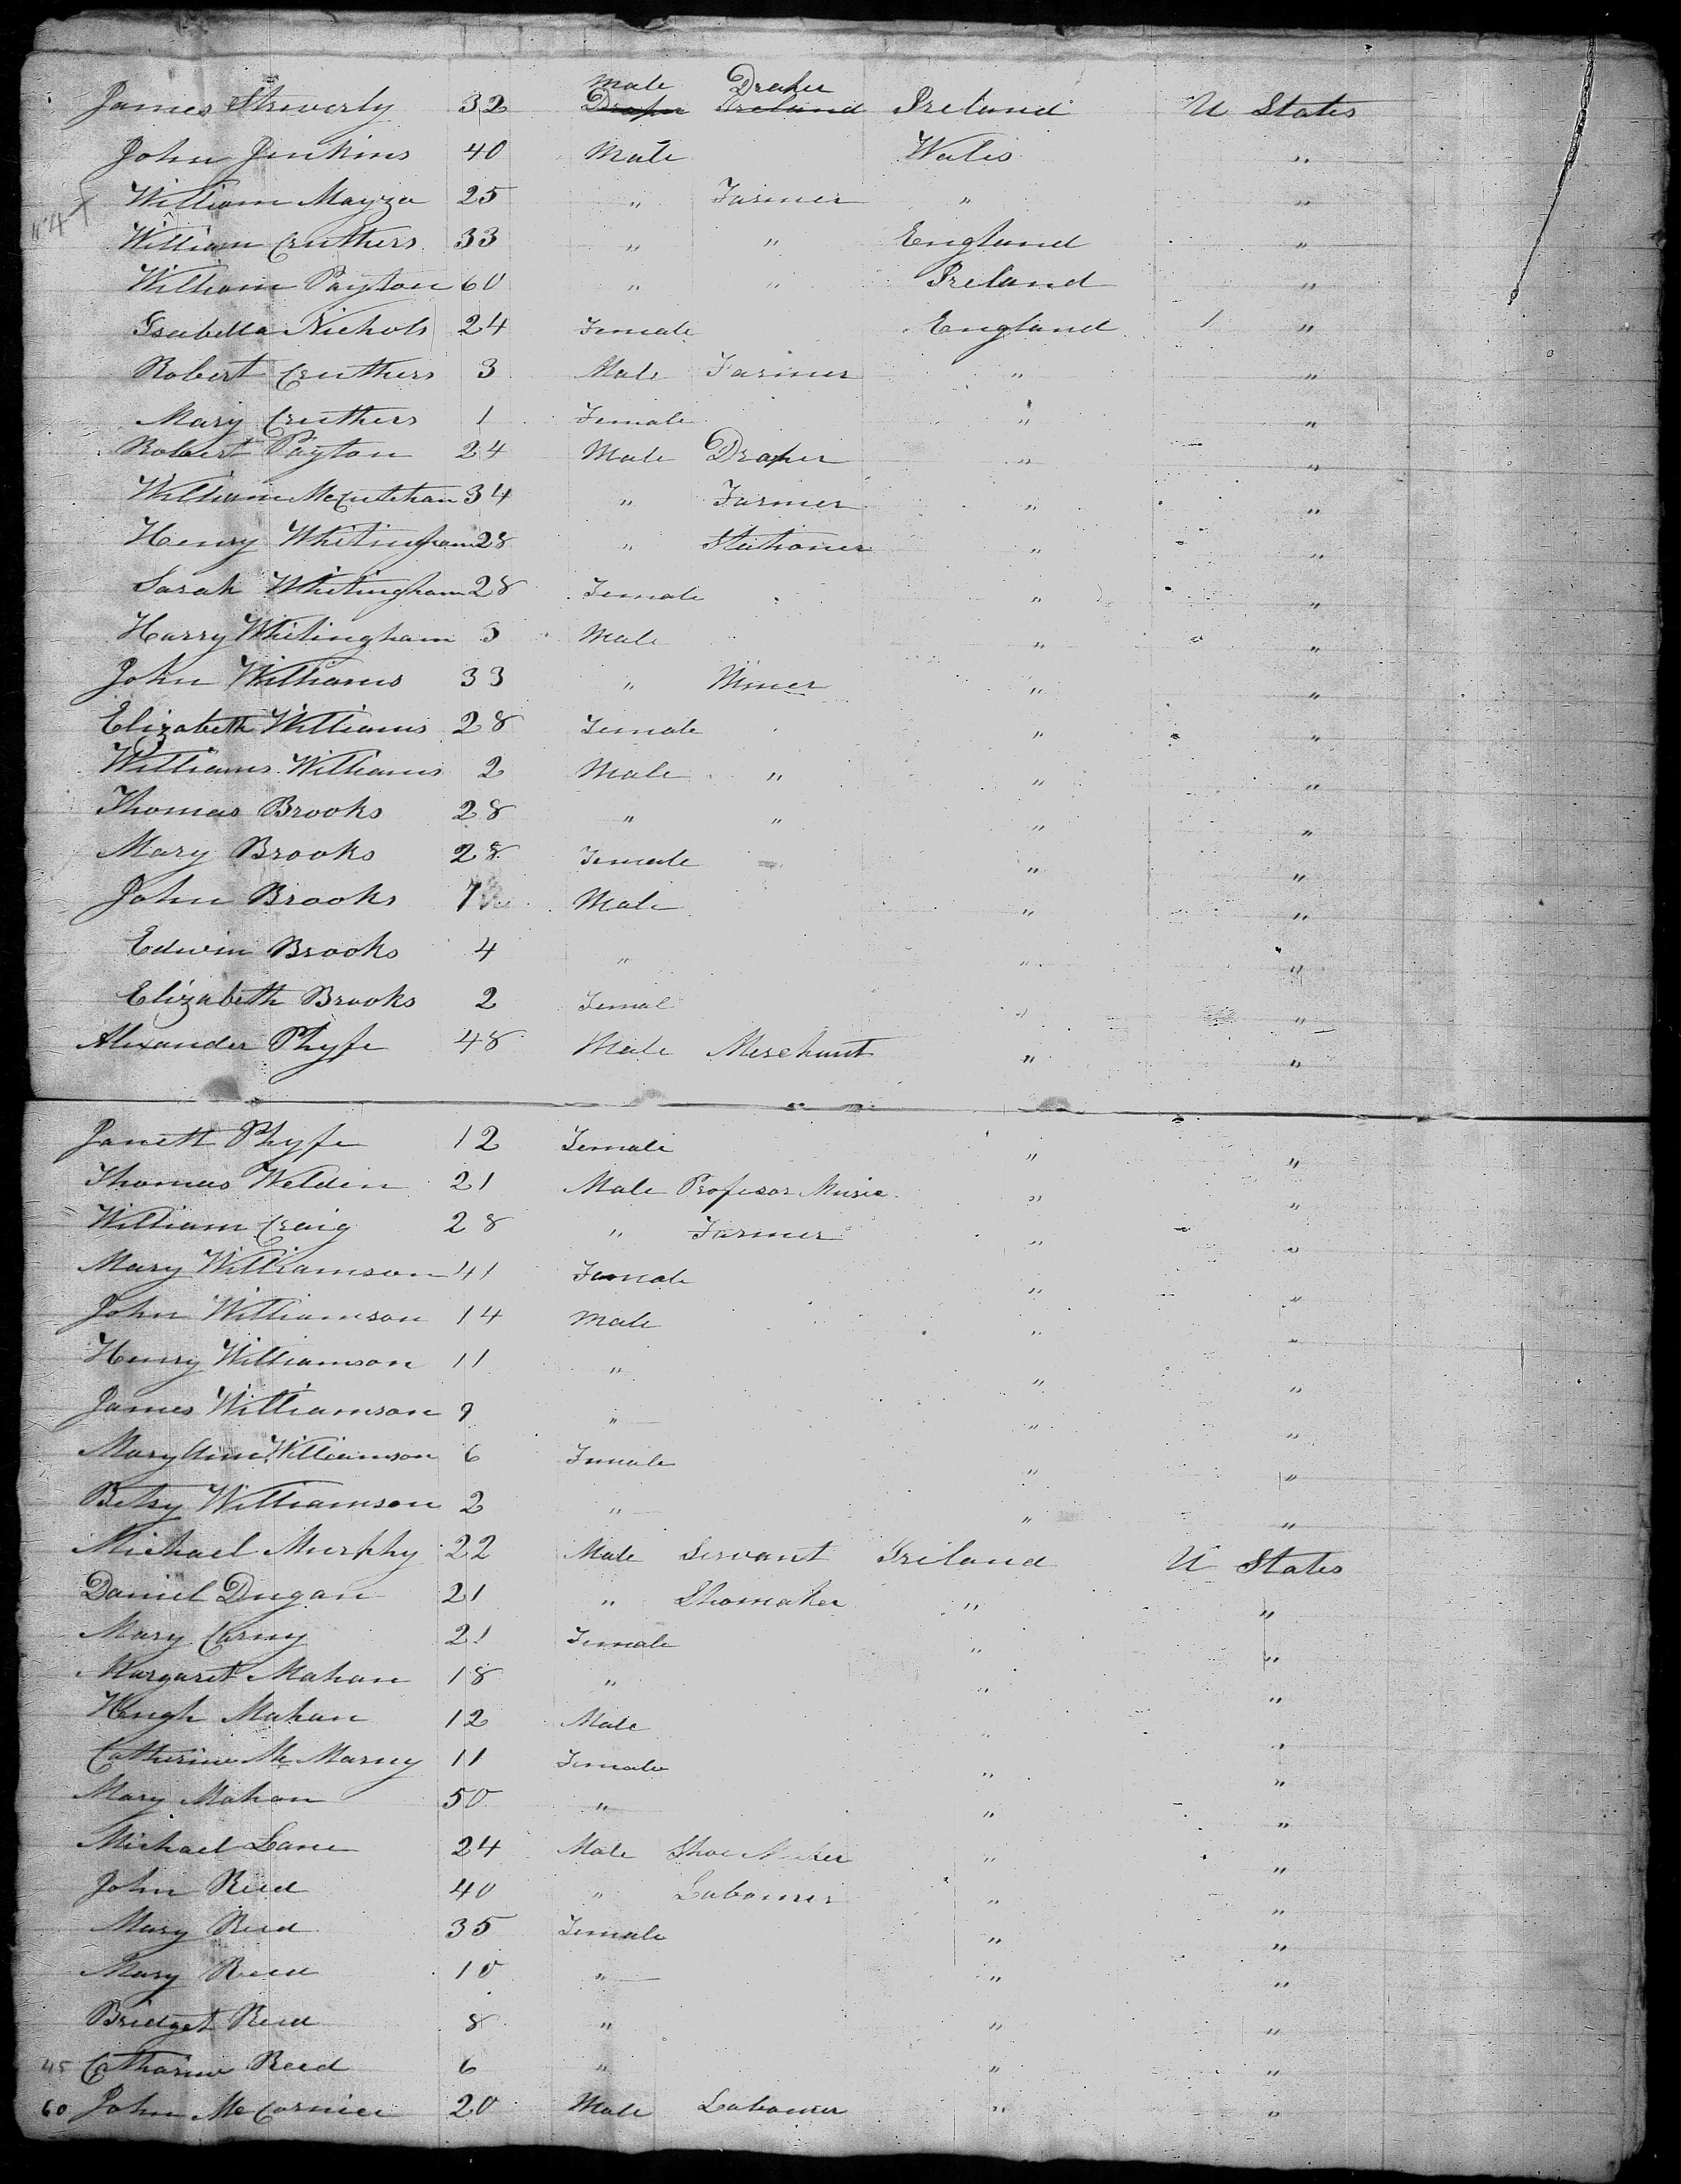 Male Draper
James Streverly 32 Draper Ireland Ireland U States
John Jenkins 40 Male Wales "
William Mayza 25 " Farmer " "
William Cruthers 33 " " England "
William Payton 60 " " Ireland "
Isabella Nichols 24 Female England "
Robert Cruthers 3 Male Farmer " "
Mary Cruthers 1 Female " "
Robert Payton 24 Male Draper " "
William McCutchan 34 " Farmer " "
Henry Whitingham 28 " Stationer " "
Sarah Whitingham 28 Female " "
Harry Whitingham 3 Male " "
John Williams 33 " Miner " "
Elizabeth Williams 28 Female " "
Williams Williams 2 Male " " "
Thomas Brooks 28 " " " "
Mary Brooks 28 Female " "
John Brooks 7 Male " "
Edwin Brooks 4 " " "
Elizabeth Brooks 2 Femal " "
Alexander Phyfe 48 Male Merchant " "
Janett Phyfe 12 Female " "
Thomas Weldin 21 Male Profesor Music " "
William Craig 28 " Farmer " "
Mary Williamson 41 Female " "
John Williamson 14 Male " "
Henry Williamson 11 " " "
James Williamson 9 " " "
Mary Ann Williamson 6 Female " "
Betsy Williamson 2 " " "
Michael Murphy 22 Male Servant Ireland U States
Daniel Dugan 21 " Shomaker " "
Mary Carny 21 Female " "
Margaret Mahan 18 " " "
Hugh Mahan 12 Male " "
Catherine Mc Marny 11 Female " "
Mary Mahon 50 " " "
Michael Lane 24 Male Shoe Maker " "
John Reed 40 " Labourer " "
Mary Reed 35 Female " "
Mary Reed 10 " " "
Bridget Reed 8 " " "
45 Catharine Reed 6 " " "
60 John McCormick 20 Male Labourer " "